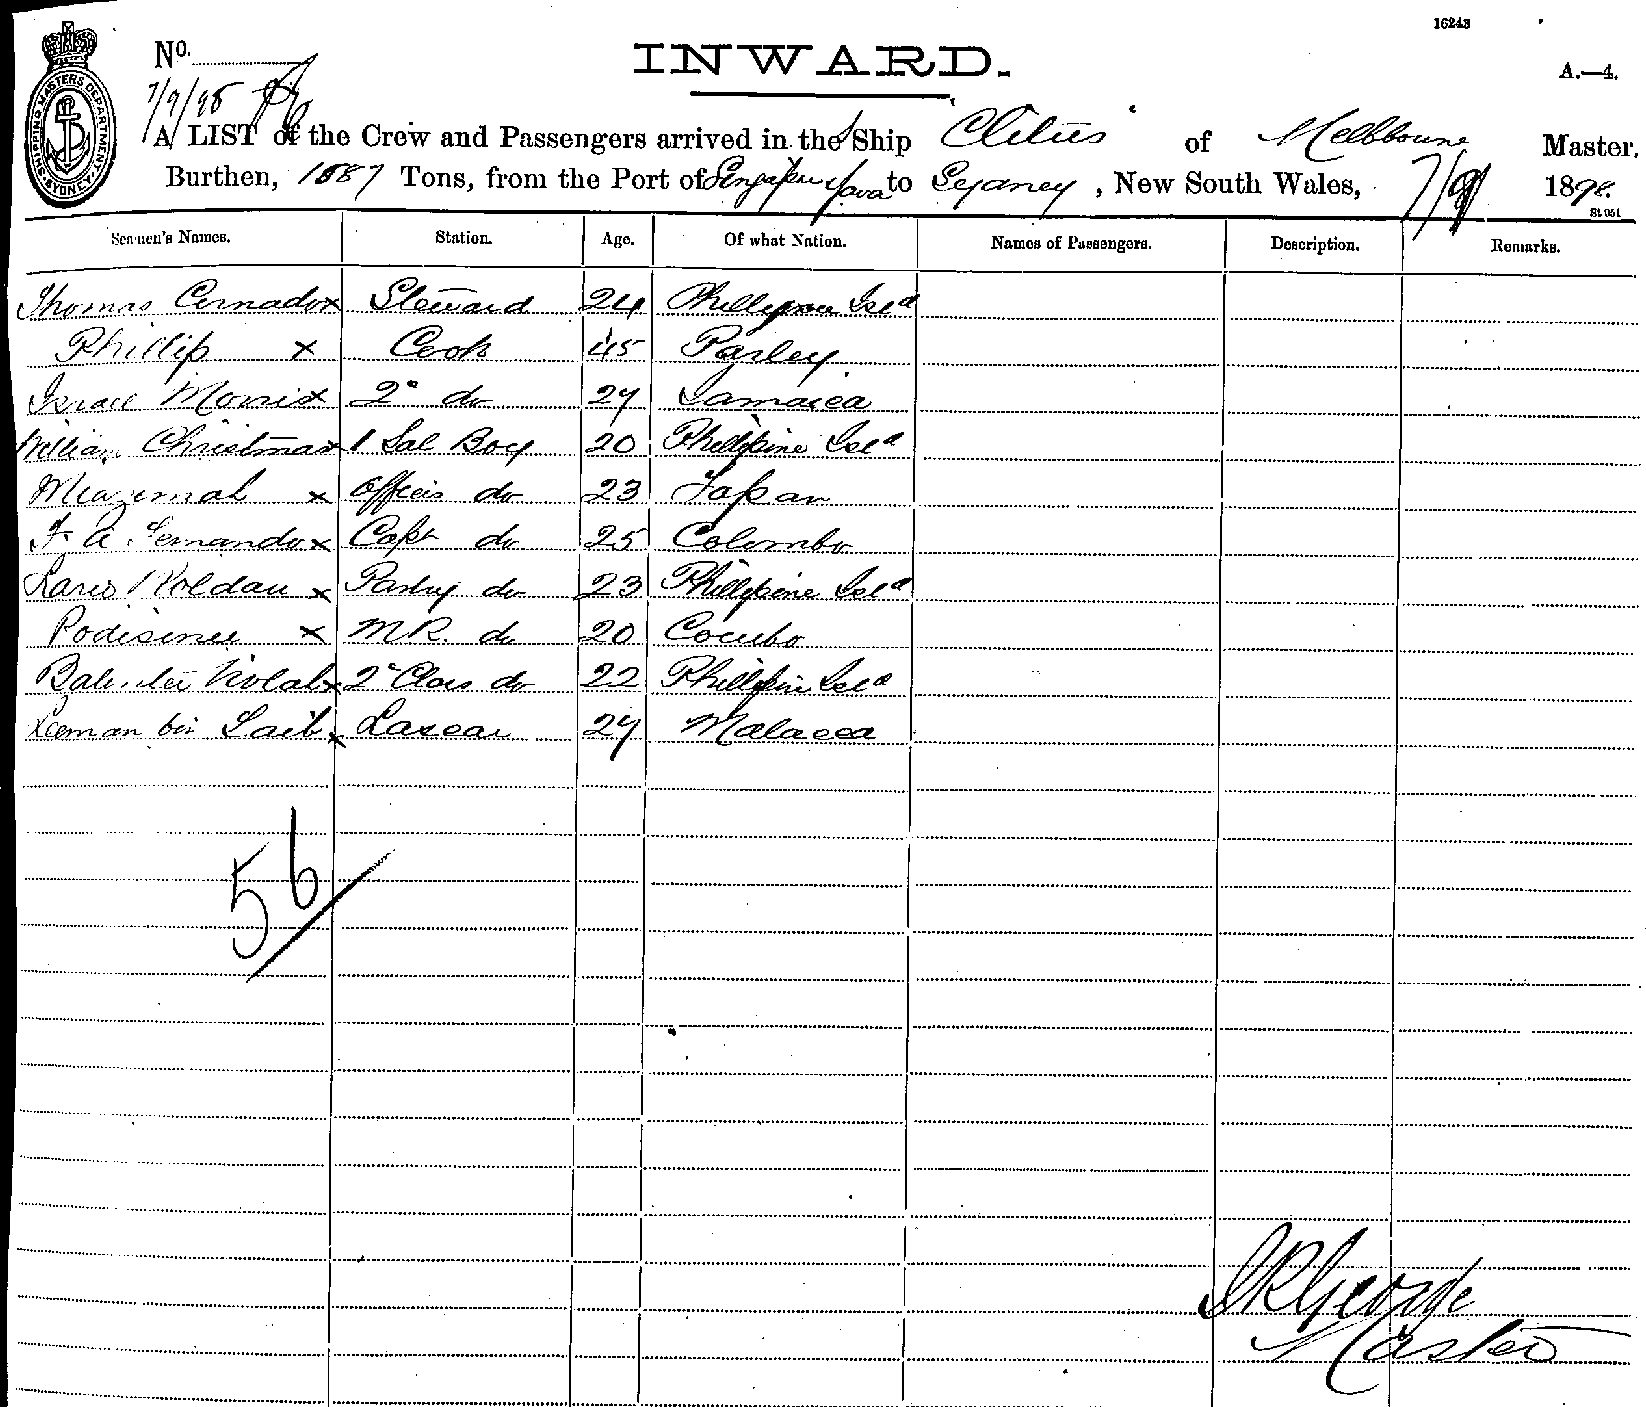 16243
No.
INWARD.
A.—4.
7/9/98
SHIPPING MASTERS DEPARTMENT SYDNEY
A LIST of the Crew and Passengers arrived in the Ship "Clitus" of Melbourne Master,
Burthen, 1087 Tons, from the Port of Singapore Java to Sydney, New South Wales, 7/9/ 1898.
St 051
Seamen's Names. Station. Age. Of what Nation. Names of Passengers. Description. Remarks.
Thomas x Steward 24 Isld
Phillip x Cook 45
Israel Morris x 2º do 27 Jamaica
William Christmas x 1 Sal Boy 20 Phillipine Isld
x Officers do 23 Japan
F. A. Fernando x Capt do 25 Colombo
x Pantry do 23 Phillipine Isld
x M R. do 20
x 2 Class do 22 Isld
Leeman bin x Lascar 27 Malacca
56
George
Master